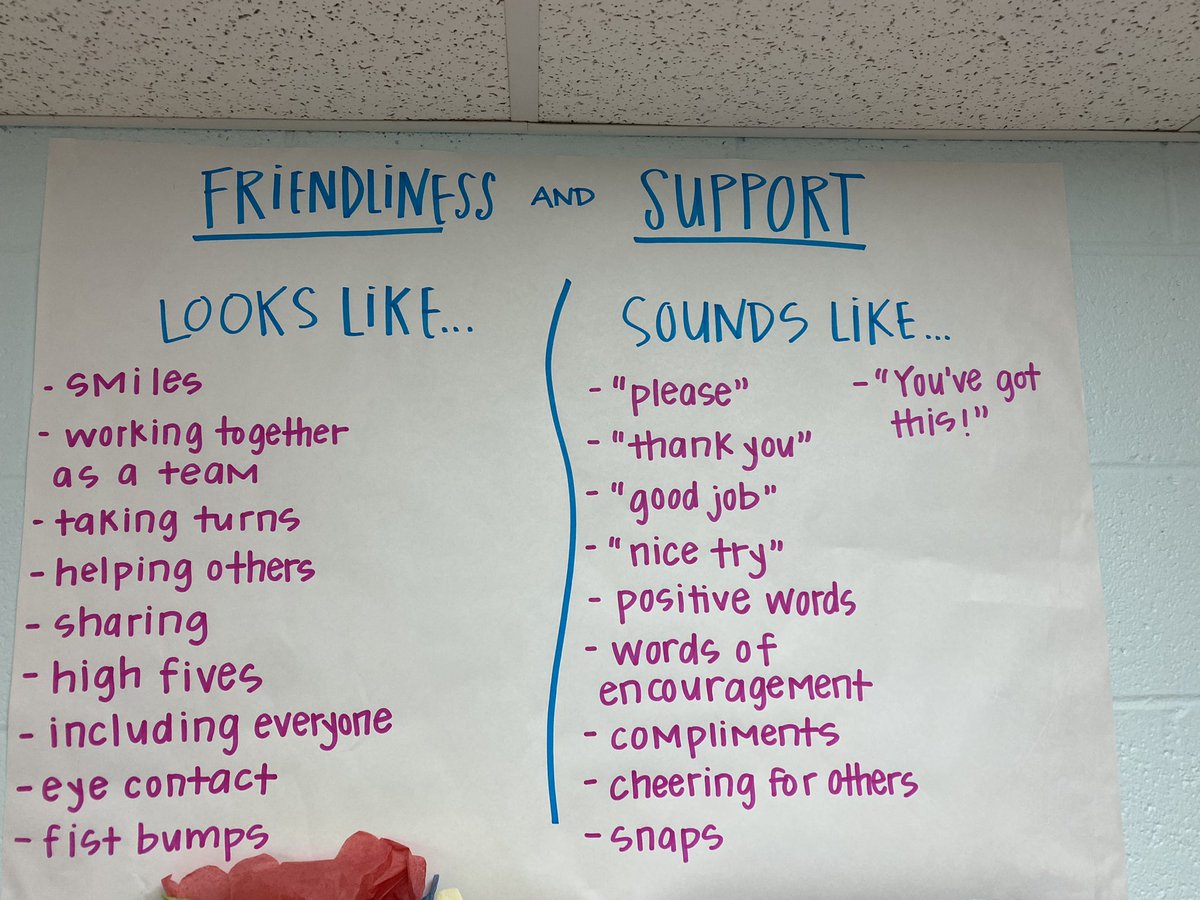 FRIENDLINESS AND SUPPORT
LOOKS LIKE...
- smiles
- working together
as a team
- taking turns
- helping others
- sharing
- high fives
- including everyone
- eye contact
- fist bumps
SOUNDS LIKE...
- "please"
- "thank you"
- "good job"
- "nice try"
- positive words
- words of
encouragement
- compliments
- cheering for others
- snaps
- "You've got
this!"